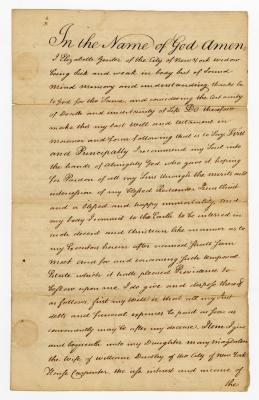 In the Name of God Amen
I Elizabeth of the City of New York widow
being sick and weak in body but of Sound
Mind memory and understanding thanks be
to God for the Same, and considering the Certainty
of Death and uncertainty of Life DO therefore
make this my last will and testament in
manner and form following that is to Say First
and Principally I recommend my Soul into
the hands of Almighty God who gave it hoping
for Pardon of all my Sins through the merits and
intercession of my blessed Redeemer
and a blessed and happy immortality and
my body I commit to the Earth to be interred in
such decent and Christian like manner as to
my Executors herein after named shall Seem
meet and for and concerning such temporal
Estate which it hath pleased Providence to
bestow upon me, I do give and dispose thereof
as follows, first my will is, that all my just
debts and funeral expences be paid as soon as
conveniently may be after my decease. Item I give
and bequeath unto my Daughter Mary Magdalen
the Wife of William Dudley of the City of New York
House Carpenter, the use interest and income of
the